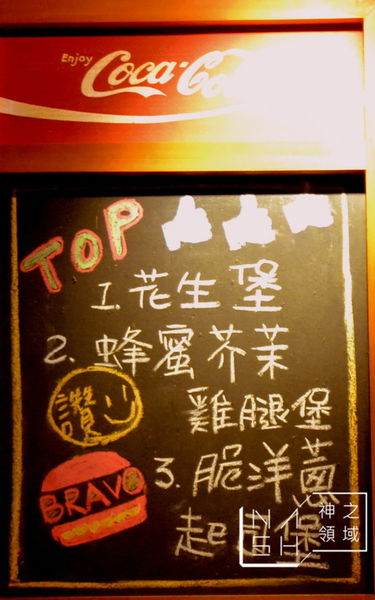 Enjoy
Coca-Co
TOP
1.花生堡
2.蜂蜜芥茉
雞腿堡
讚
3.脆洋蔥
起 堡
BRAVO
神之
領域